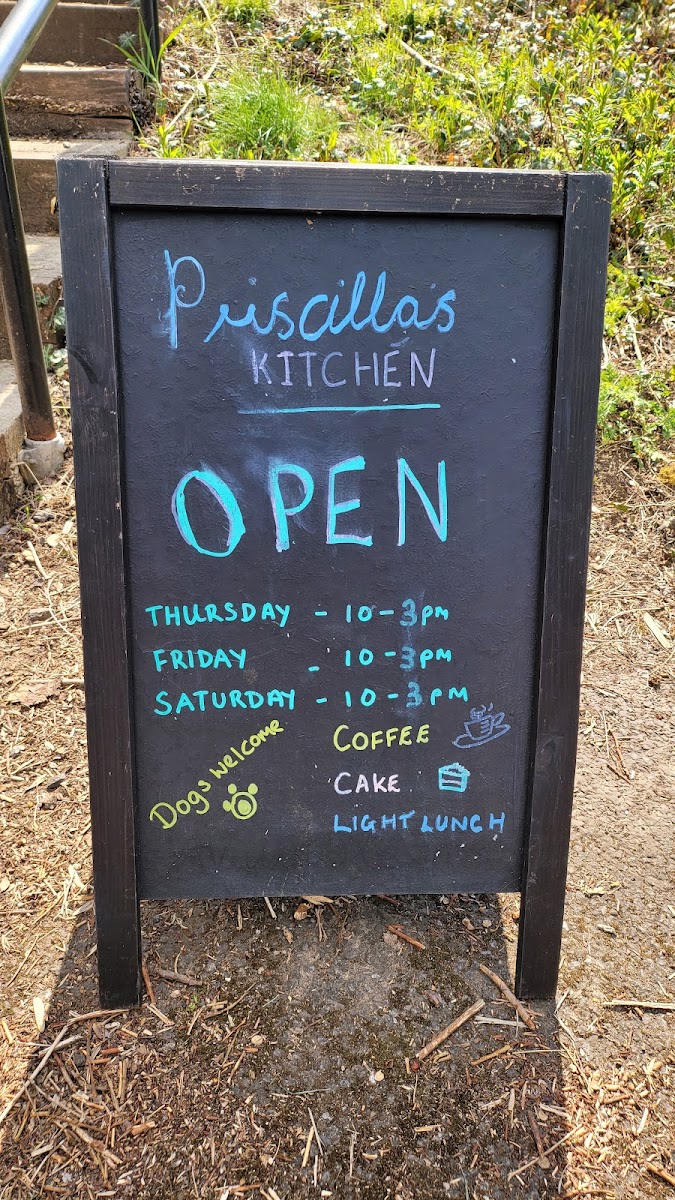 Priscilla's
KITCHEN
OPEN
THURSDAY - 10-3PM
FRIDAY - 10-3PM
SATURDAY - 10-3PM
Dogs welcome
COFFEE
CAKE
LIGHT LUNCH